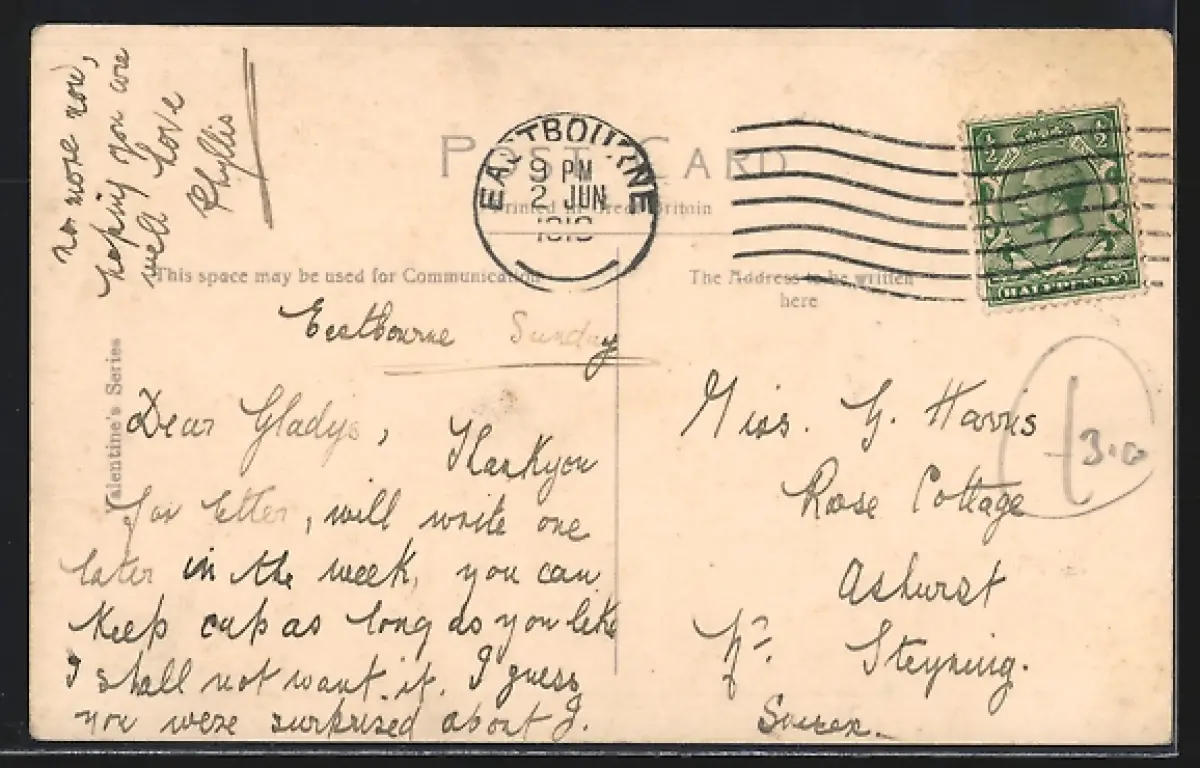 POST CARD
Printed in Great Britain
This space may be used for Communication
The Address to be written
here
EASTBOURNE
9 PM
2 JUN
½ ½
HALFPENNY
Valentine's Series
Eastbourne Sunday
Dear Gladys,
Thankyou
for letter, will write one
later in the week, you can
keep cap as long as you like
I shall not want it. I guess
you were surprised about J.
no more now,
hoping you are
well love
Phyllis
Miss. G. Harris
Rose Cottage
Ashurst
Nr. Steyning.
Sussex.